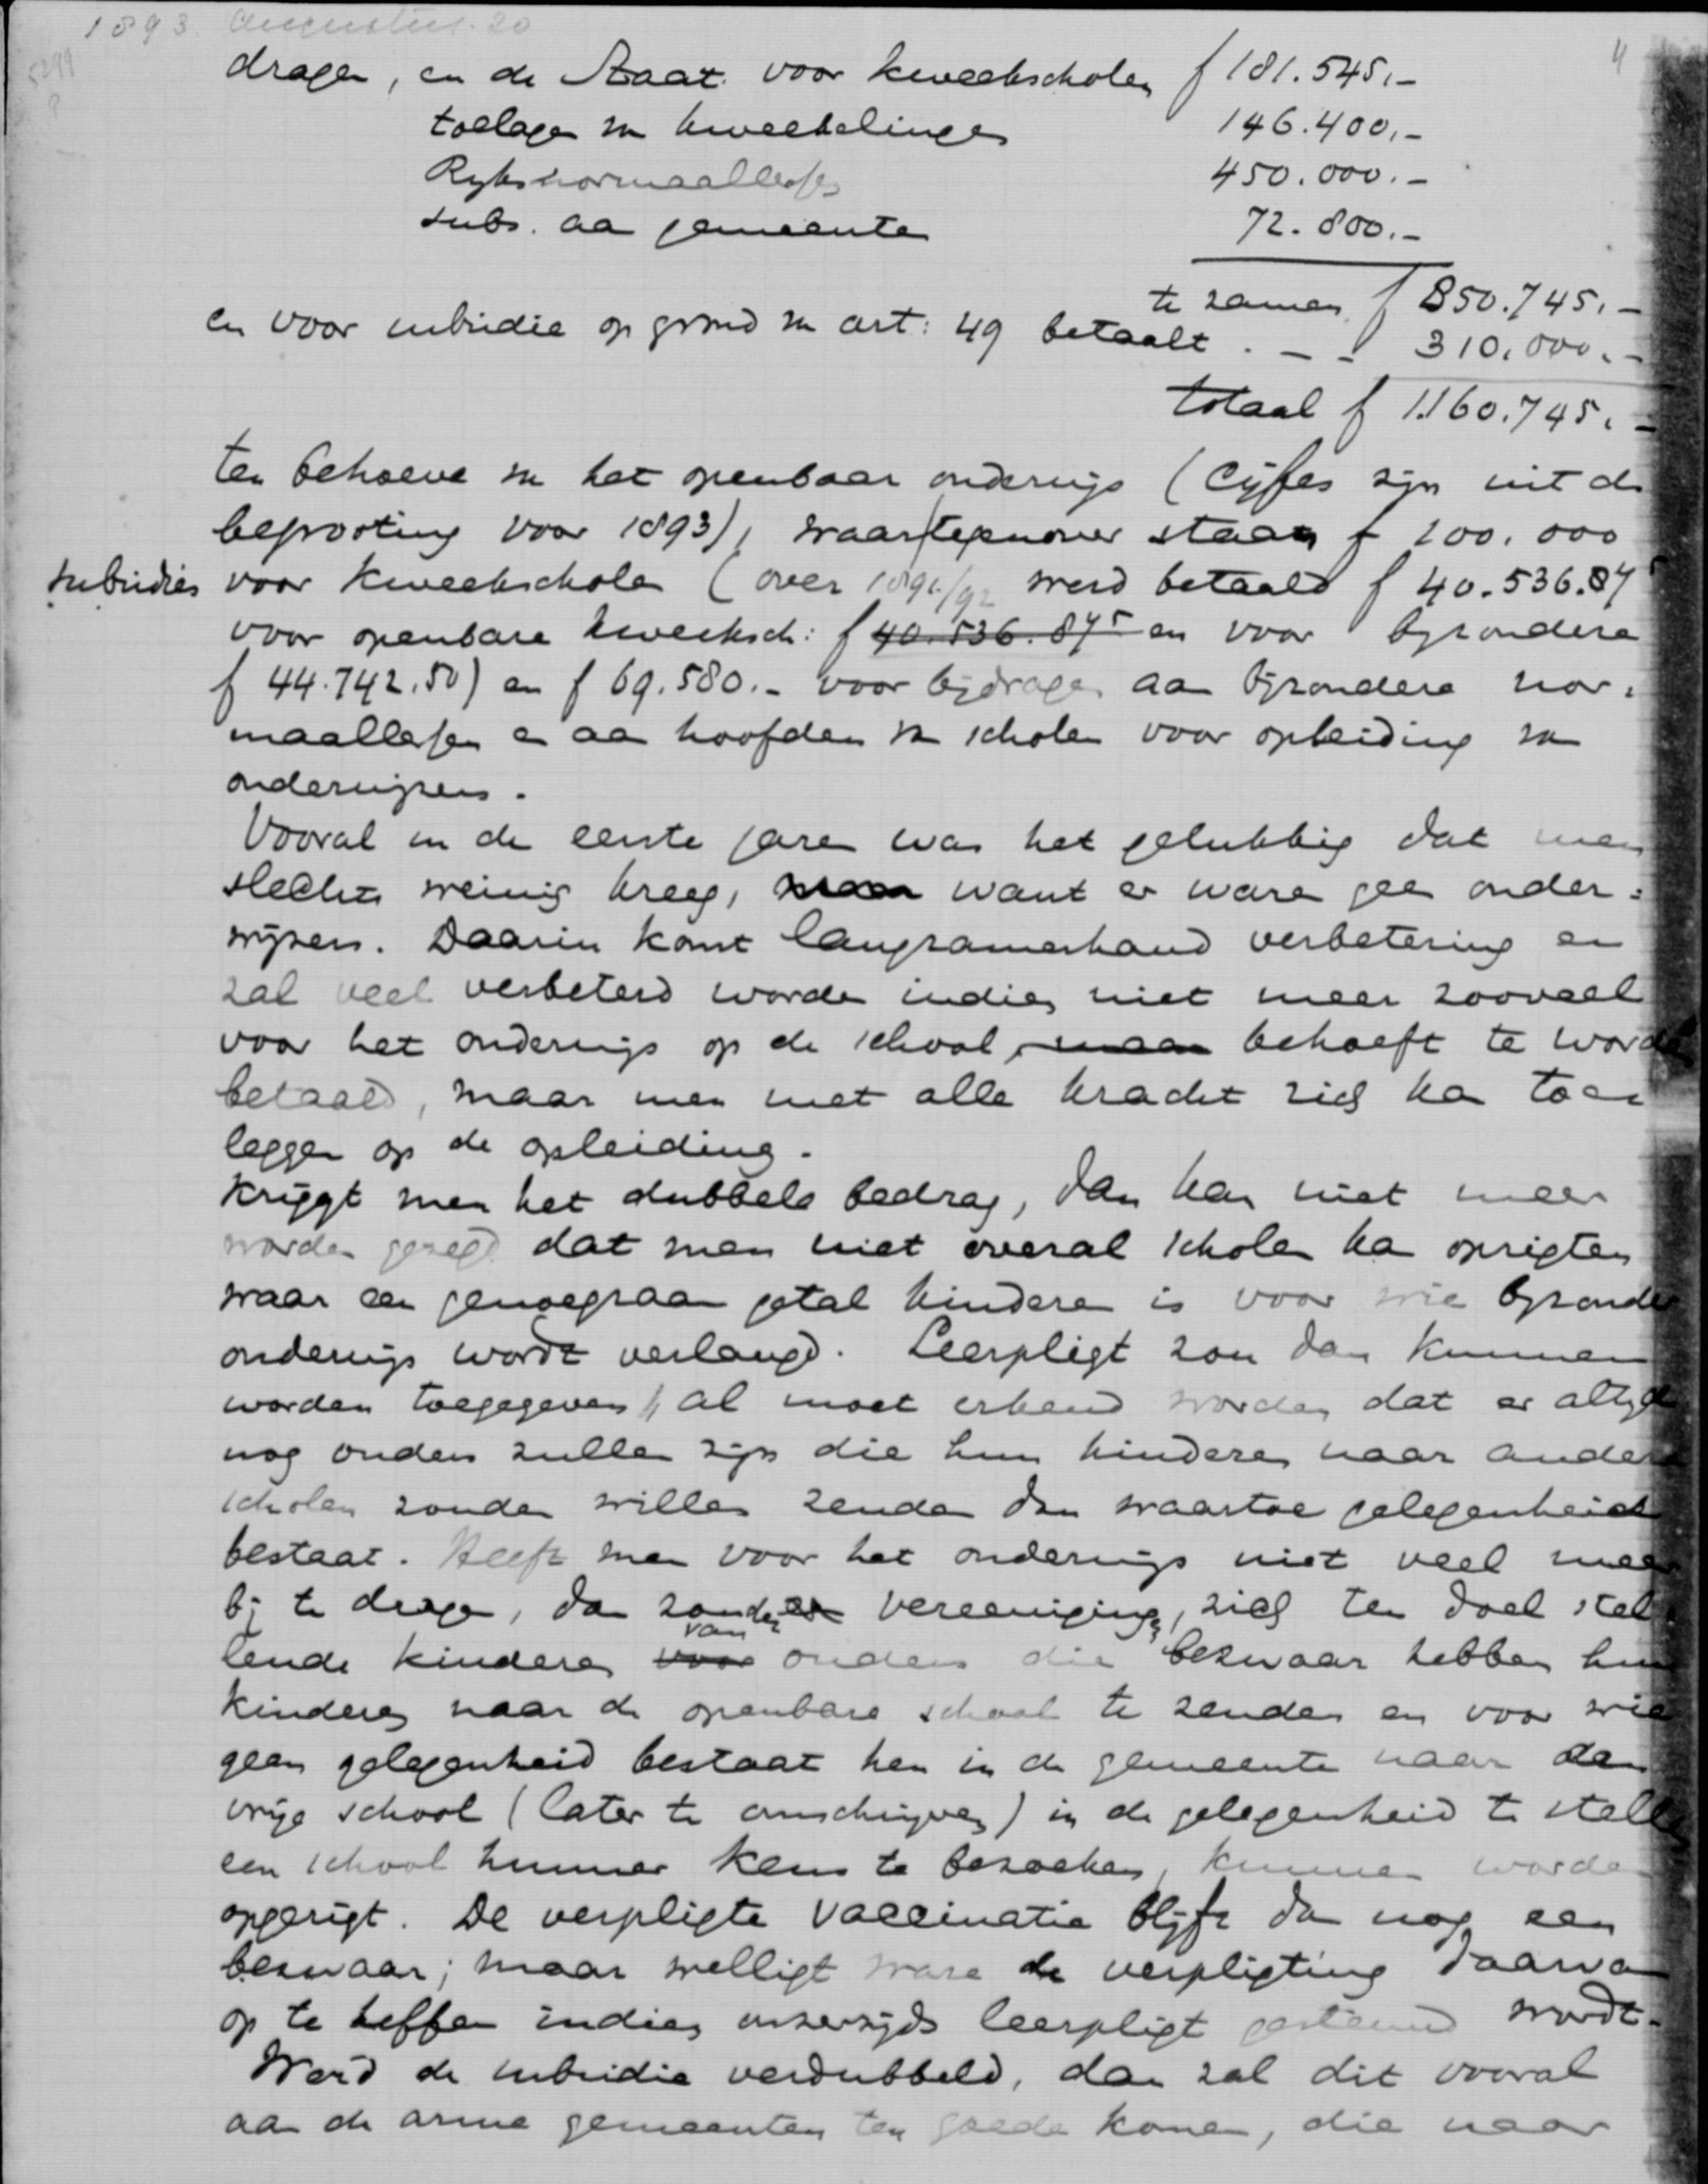 1893. Augustus. 20
4
dragen, en de Staat voor kweekscholen f 181.545,-
toelagen vn kweekelingen 146.400,-
Ryksnormaallessen 450.000.-
subs. aan gemeenten 72.800.-
te zamen f 850.745.-
en voor subsidie op grond vn art: 49 betaalt . - - 310.000.-
totaal f 1.160.745.-
ten behoeve vn het openbaar onderwijs (Cijfers zijn uit de
begrooting voor 1893), waartegenover staan f 100.000
subsidies voor kweekscholen (over 1891/92 werd betaald f 40.536.87⁵
voor openbare kweeksch: f 40.536.87⁵ en voor byzondere
f 44.742.50) en f 69.580.- voor bijdragen aan byzondere nor=
maallessen en aan hoofden vn scholen voor opleiding vn
onderwijzers.
Vooral in de eerste jaren was het gelukkig dat men
slechts weinig kreeg, maar want er waren geen onder=
wijzers. Daarin komt langzamerhand verbetering en
zal veel verbeterd worden indien niet meer zooveel
voor het onderwijs op de school, maar behoeft te worden
betaald, maar men met alle kracht zich kan toe=
leggen op de opleiding.
Krijgt men het dubbele bedrag, dan kan niet meer
worden gezegd dat men niet overal scholen kan oprigten
waar een genoegzaam getal kinderen is voor wie byzonder
onderwijs wordt verlangd. Leerpligt zou dan kunnen
worden toegegeven, al moet erkend worden dat er altyd
nog ouders zullen zijn die hun kinderen naar andere
scholen zouden willen zenden dan waartoe gelegenheid
bestaat. Heeft men voor het onderwijs niet veel meer
bij te dragen, dan zouden er vereenigingen, zich ten doel stel=
lende kinderen voor van ouders die bezwaar hebben hun
kinderen naar de openbare school te zenden en voor wie
geen gelegenheid bestaat hen in de gemeente naar een
vrije school (later te omschrijven) in de gelegenheid te stellen
een school hunner keus te bezoeken, kunnen worden
opgerigt. De verpligte vaccinatie blijft dan nog een
bezwaar; maar welligt ware de verpligting daarvan
op te heffen indien onzerzijds leerpligt gesteund wordt.
Werd de subsidie verdubbeld, dan zal dit vooral
aan de arme gemeenten ten goede komen, die naar